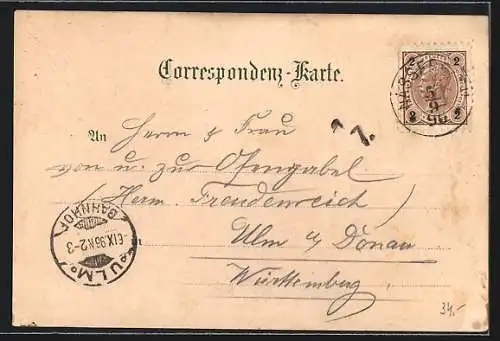 Correspondenz-Karte.
2 2
2 2
5
9
96
An Herrn & Frau
von u. zur Ofengabel
(Herm. Freudenreich)
Ulm a/ Donau
Württemberg
BAHNHOF
6.IX.96.N.2-3
ULM
34.-